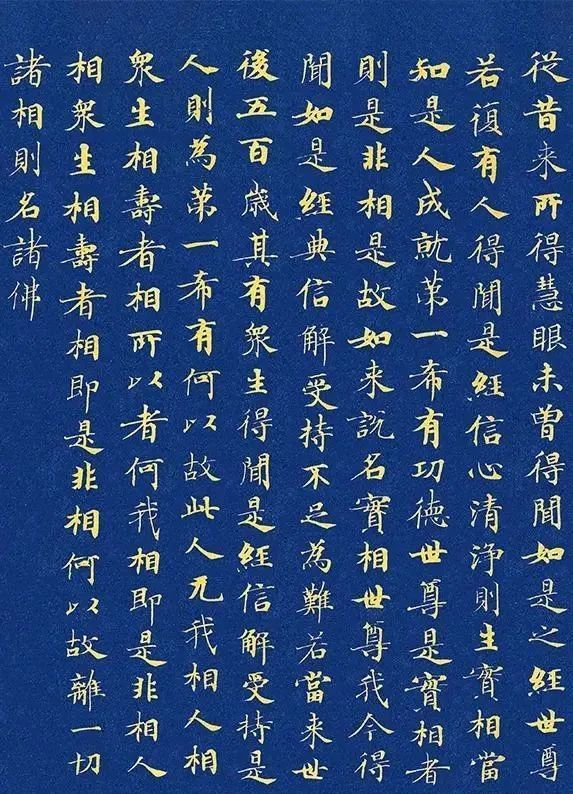 從昔来所得慧眼未曽得聞如是之經世尊
若復有人得聞是經信心清淨則生實相當
知是人成就苐一希有功徳世尊是實相者
則是非相是故如来説名實相世尊我今得
聞如是經典信解受持不足為難若當来世
後五百歳其有衆生得聞是經信解受持是
人則為苐一希有何以故此人无我相人相
衆生相壽者相所以者何我相即是非相人
相衆生相壽者相即是非相何以故離一切
諸相則名諸佛